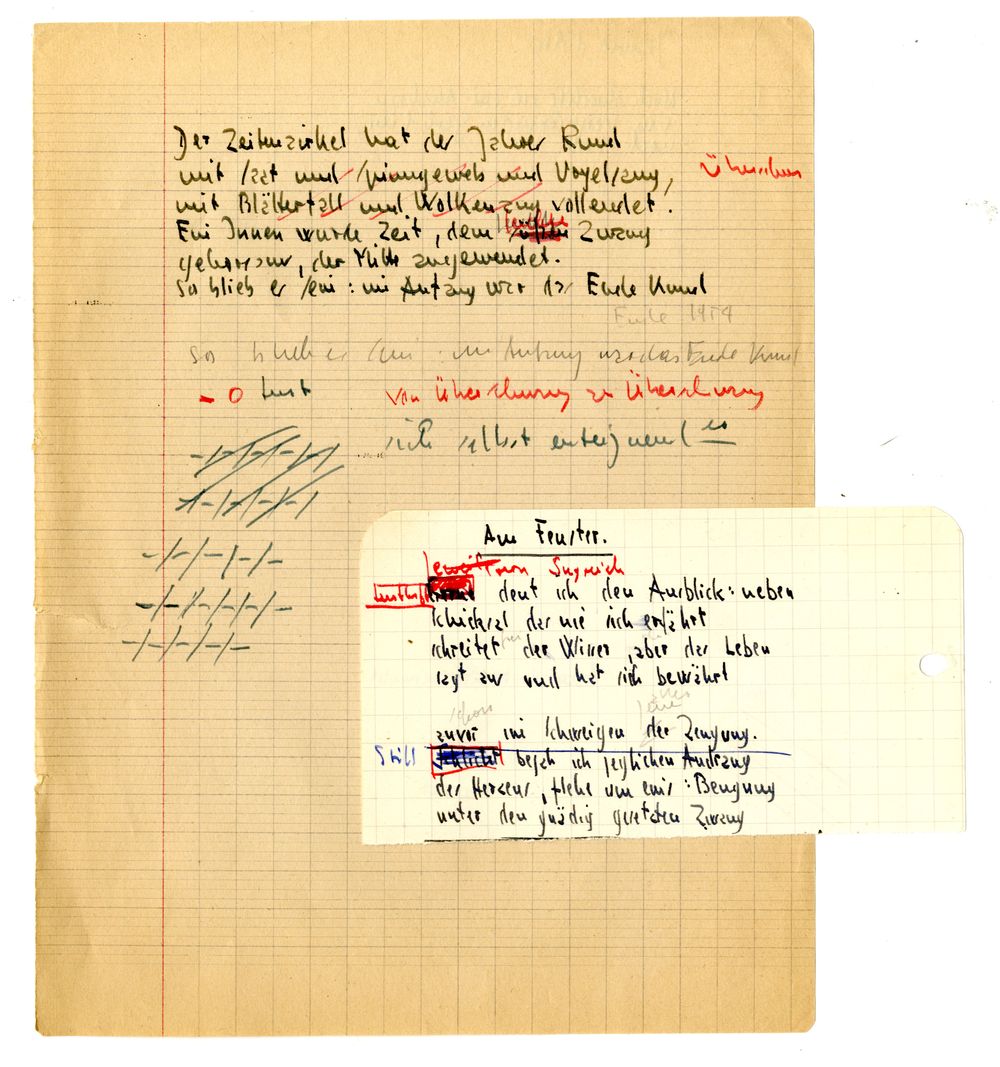 Der Zeitenzirkel hat der Jahre Rund
mit Saat und Spinngeweb und Vogelsang,
mit Blätterfall und Wolkenzug vollendet.
Ein Innen wurde Zeit, dem Zwang
gehorsam, der Mitte zugewendet.
So blieb er sein: im Anfang war das Ende kund
Ende 1954
So blieb er sein: im Anfang war das Ende kund
- o Lust
von zu
sich selbst enteignend
Am Fenster.
von
deut ich den Ausblick: neben
Schicksal das nie sich erfährt
schreitet der Wissen, aber das Leben
sagt aus und hat sich bewährt
schon
zuvor im Schweigen der Zeugung.
Still
Schlicht bejah ich jeglichen Andrang
des Herzens, flehe um eins: Beugung
unter den gnädig gesetzten Zwang